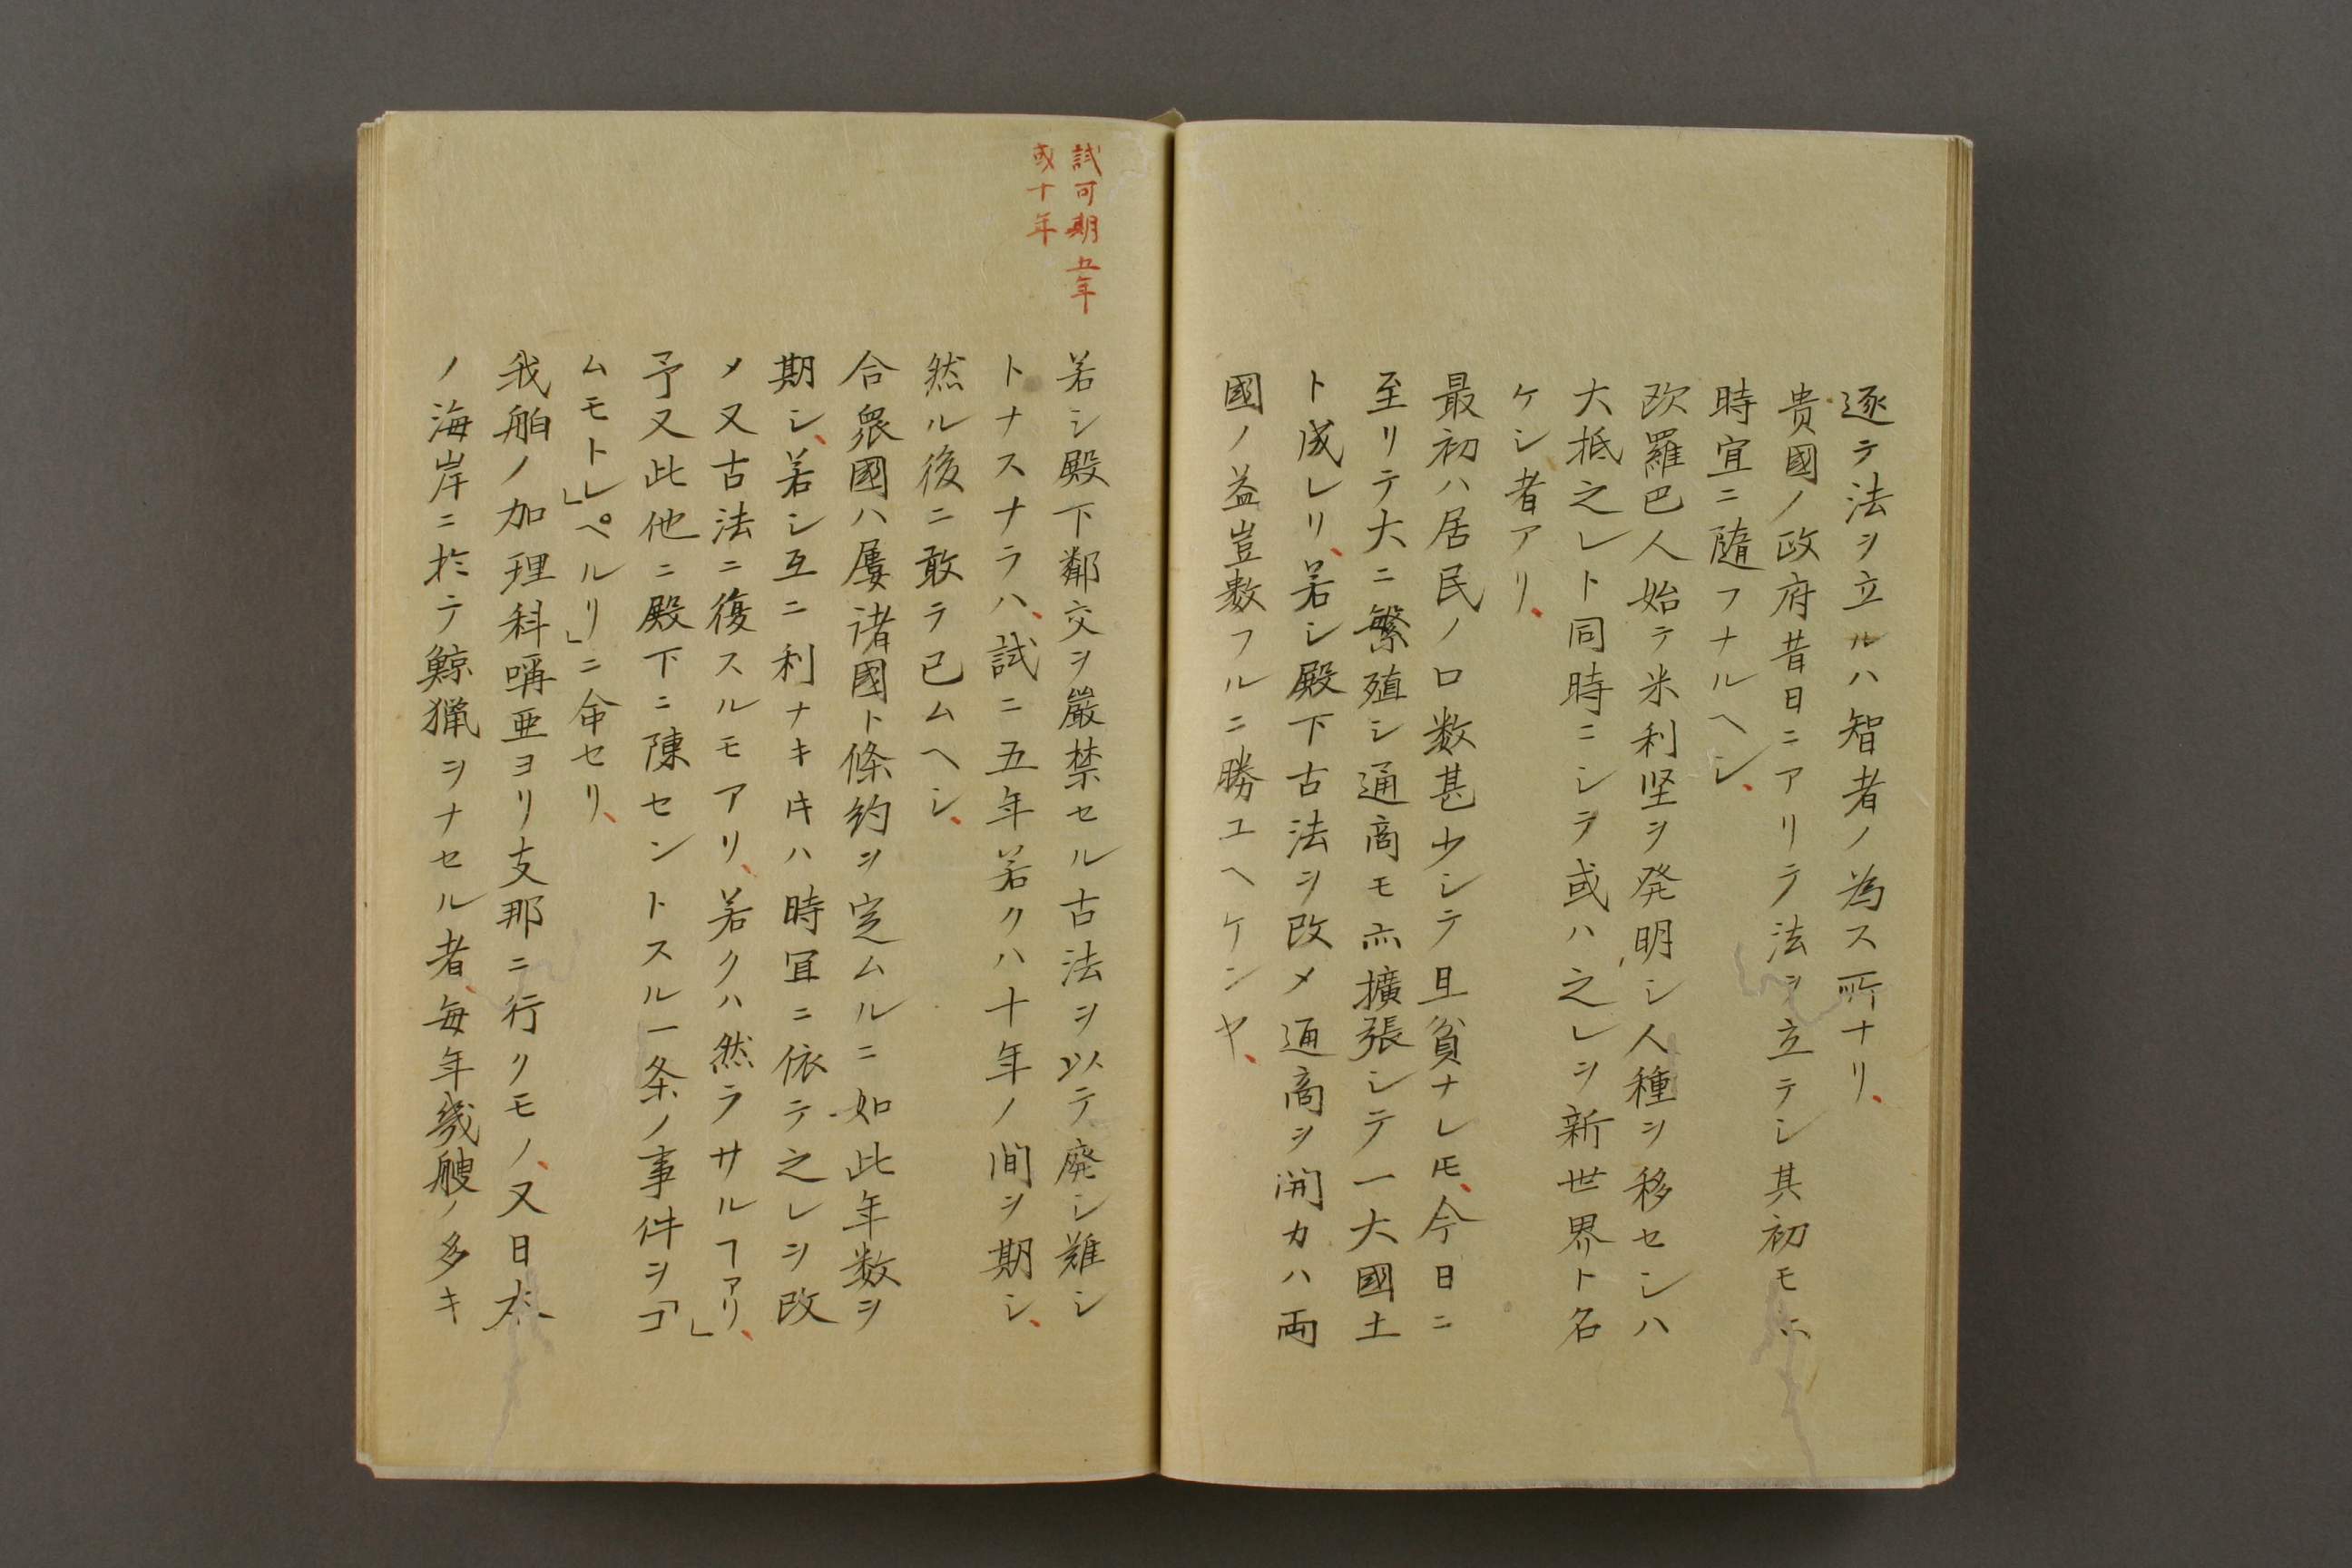 逐テ法ヲ立ルハ智者ノ為ス所ナリ、
貴國ノ政府昔日ニアリテ法ヲ立テシ其初モ亦
時宜ニ隨フナルヘシ、
欧羅巴人始テ米利堅ヲ発明シ人種ヲ移センハ
大抵之レト同時ニシテ或ハ之レヲ新世界ト名
ケシ者アリ、
最初ハ居民ノ口数甚少シテ且貧ナレ𪜈、今日ニ
至リテ大ニ繁殖シ通商モ亦擴張シテ一大國土
ト成レリ、若シ殿下古法ヲ改メ通商ヲ開カハ両
國ノ益豈数フルニ勝ユヘケンヤ、
試可期五年
或十年
若シ殿下鄰交ヲ嚴禁セル古法ヲ以テ廃シ難シ
トナスナラハ、試ニ五年若クハ十年ノ間ヲ期シ、
然ル後ニ敢テ已ムヘシ、
合衆國ハ屢諸國ト條約ヲ定ムルニ如此年数ヲ
期シ、若シ互ニ利ナキ𪜈ハ時宜ニ依テ之レヲ改
メ又古法ニ復スルモアリ、若クハ然ラサルヿアリ、
予又此他ニ殿下ニ陳セントスル一条ノ事件ヲ「コ」
ムモトレ」「ペルリ」ニ命セリ、
我舶ノ加理科嗬亜ヨリ支那ニ行クモノ、又日本
ノ海岸ニ於テ鯨猟ヲナセル者、毎年幾艘ノ多キ